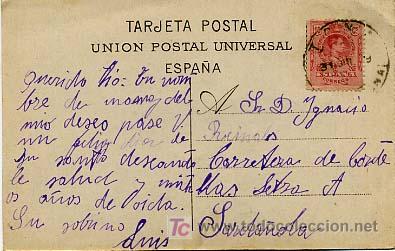 TARJETA POSTAL
UNION POSTAL UNIVERSAL
ESPAÑA
Querido tío: En nom
bre de mama del
mio deseo pase V
un feliz dia de
su santo deseando
le salud y
os años de vida.
Su sobrino
Luis
A Sr. D. Ignacio
Carretera de
llas letra A
Sardañola
ESPAÑA
todocoleccion.net